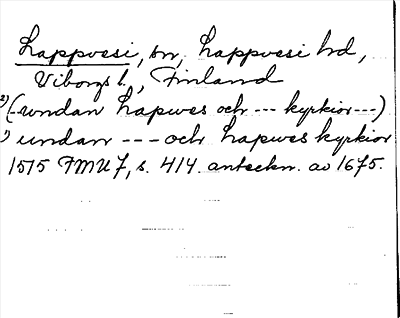 Lappvesi, sn, Lappvesi hd,
Viborgs l., Finland
2) (-undan Lapwes och --- kyrkior---)
1) undan --- och Lapwes kyrkior
1515 FMU 7, s. 414. anteckn. av 1675.